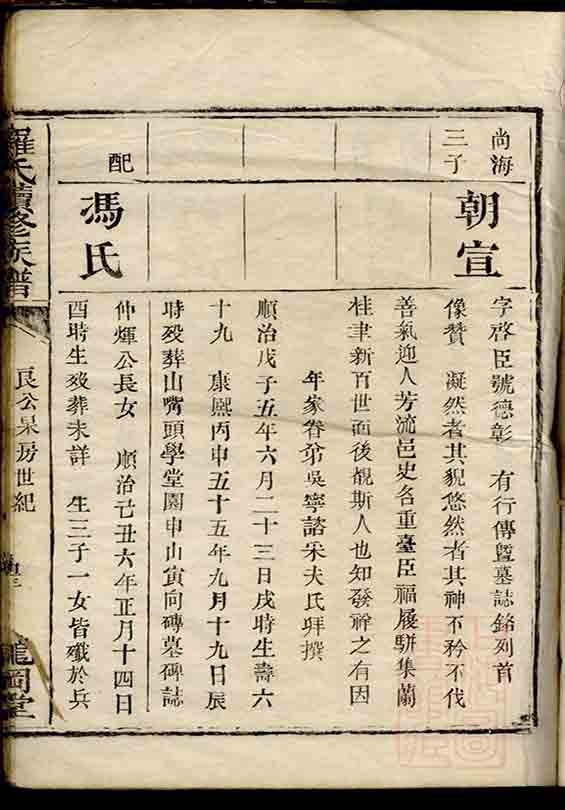 尚海
三子
朝宣
字啓臣號德彰　有行傳暨墓誌銘列首
像贊　凝然者其貌悠然者其神不矜不伐
善氣迎人芳流邑史名重臺臣福履駢集蘭
桂聿新百世而後覩斯人也知發祥之有因
年家眷弟吳寧諮采夫氏拜撰
順治戊子五年六月二十三日戌時生壽六
十九　康熙丙申五十五年九月十九日辰
時歿葬山嘴頭學堂園申山寅向磚墓碑誌
配
馮氏
仲煇公長女　順治己丑六年正月十四日
酉時生歿葬未詳　生三子一女皆殲於兵
羅氏續修族譜
良公杲房世紀
龍岡堂